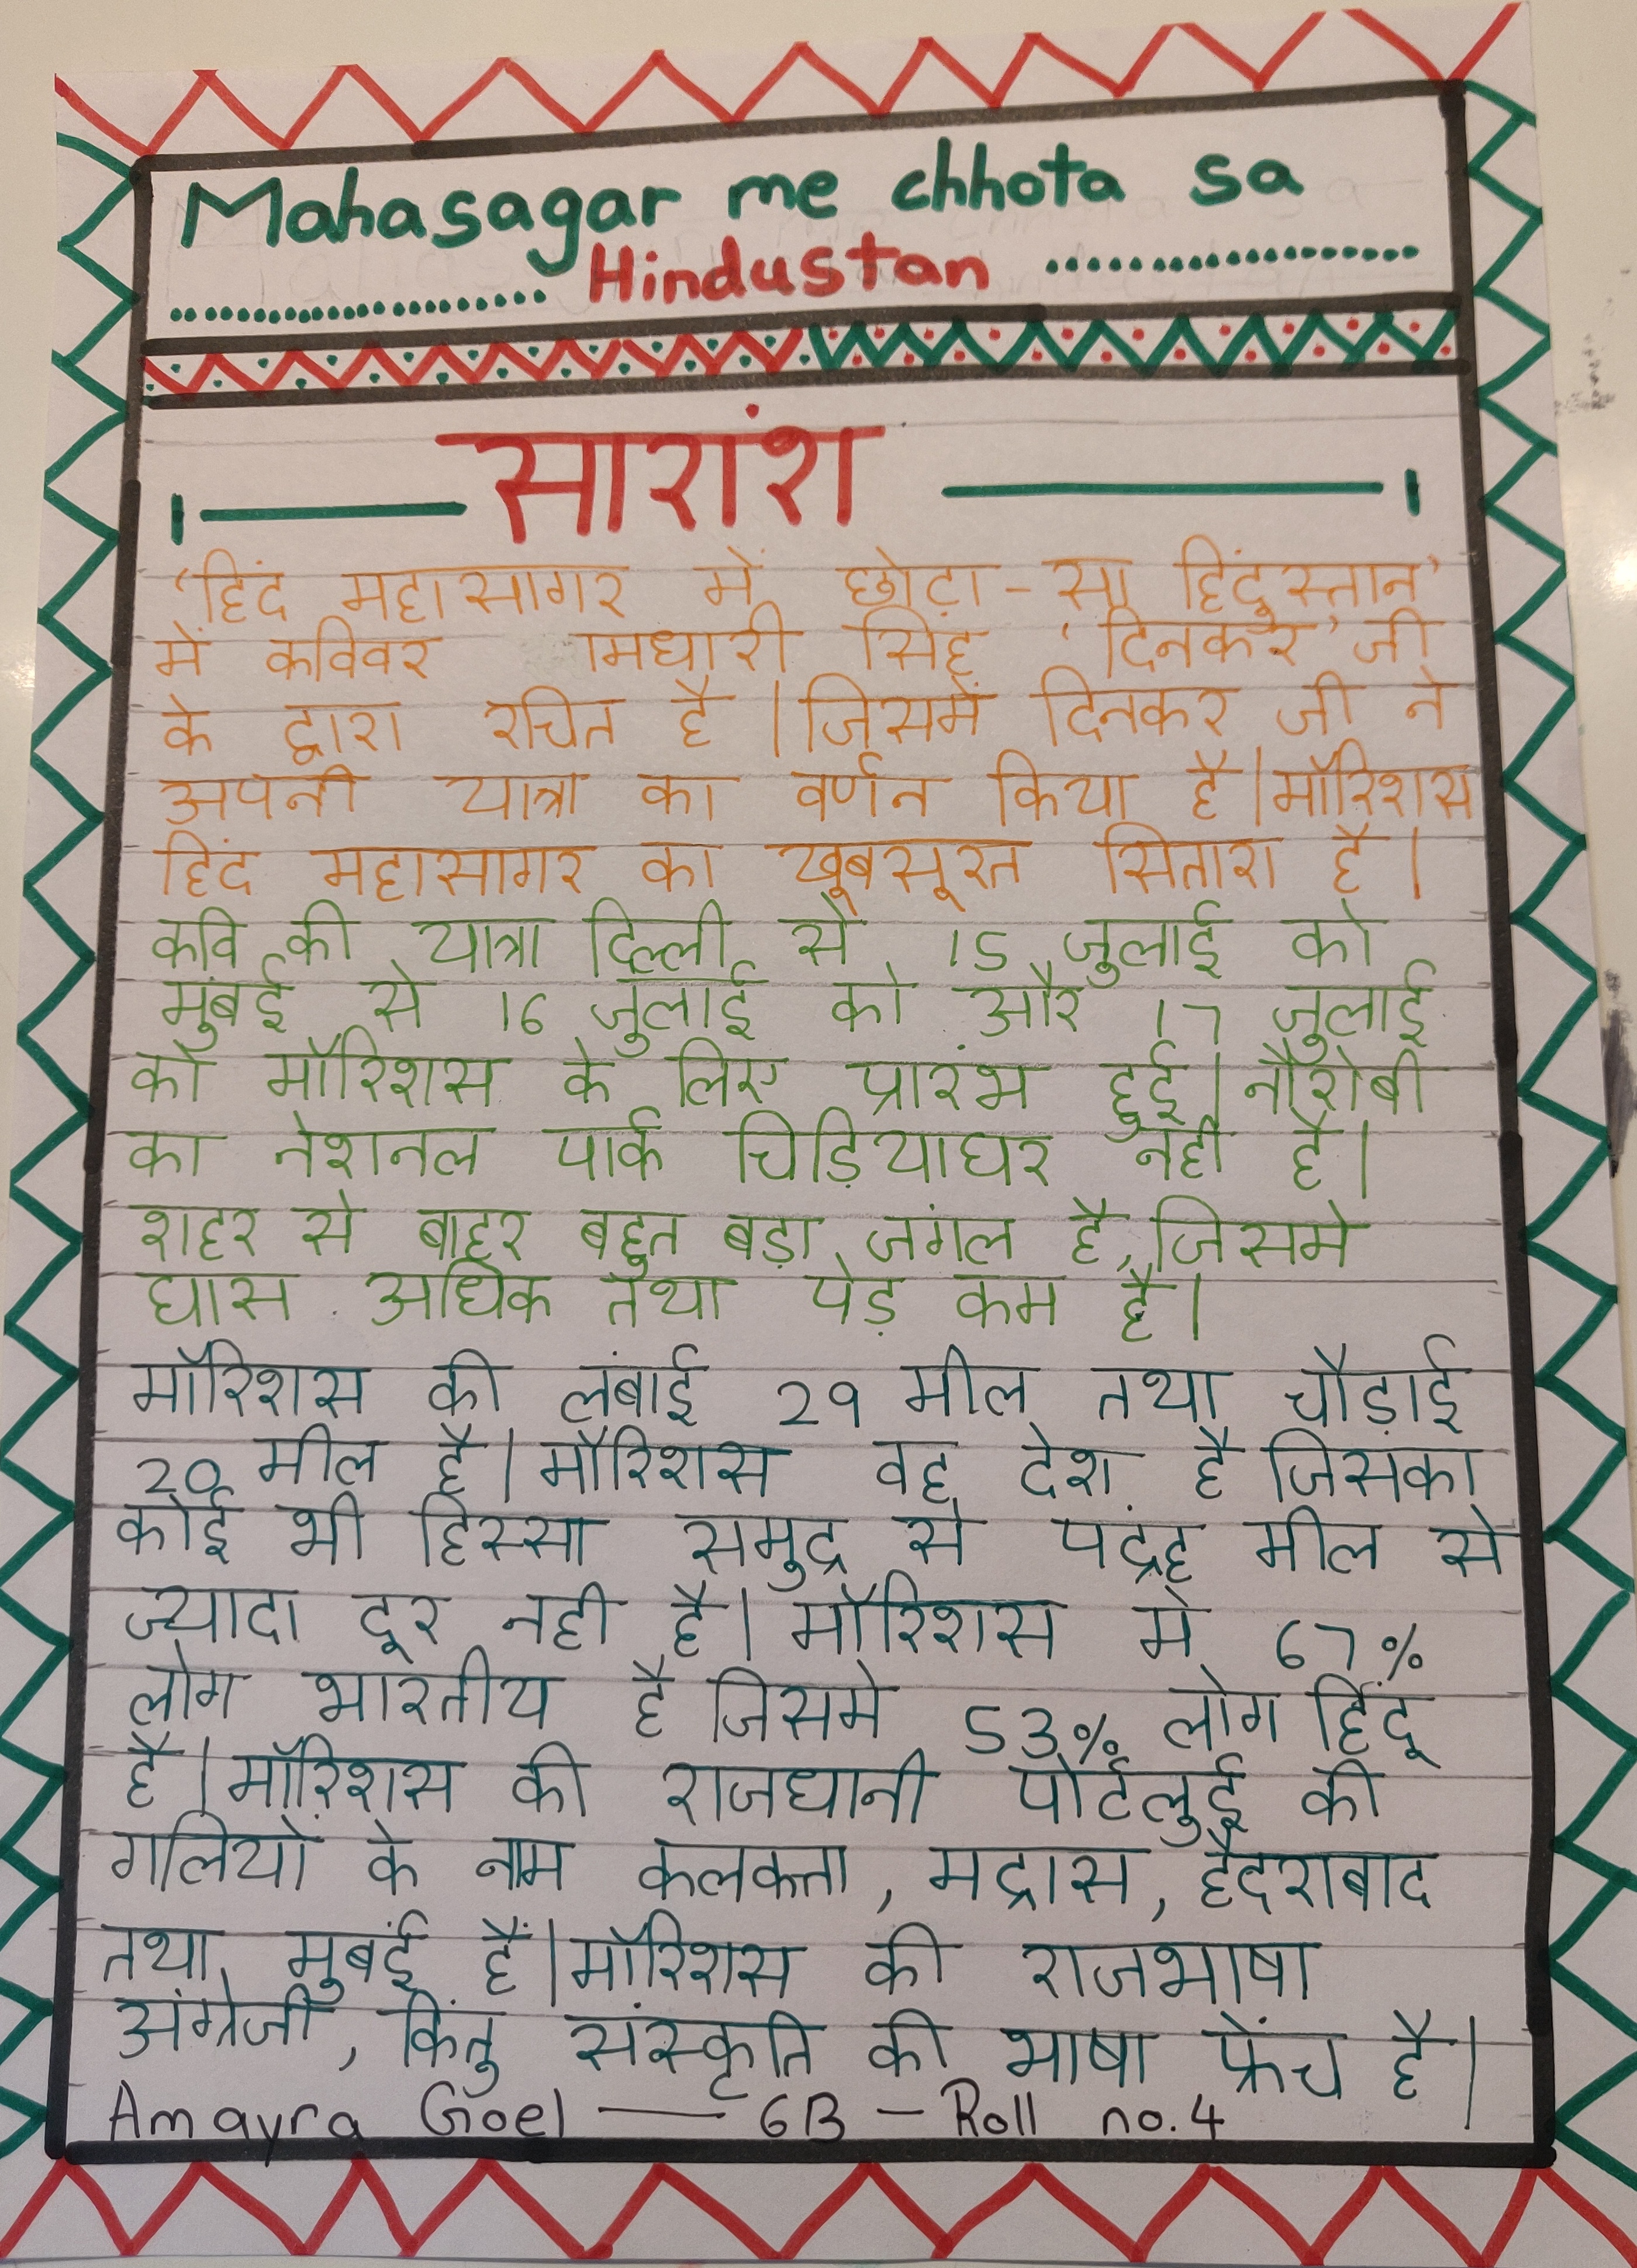 Mahasagar me chhota sa
Hindustan
सारांश
'हिंद महासागर में छोटा-सा हिंदुस्तान'
में कविवर रामधारी सिंह 'दिनकर' जी
के द्वारा रचित है |जिसमें दिनकर जी ने
अपनी यात्रा का वर्णन किया है|मॉरिशस
हिंद महासागर का खूबसूरत सितारा है |
कवि की यात्रा दिल्ली से 15 जुलाई को
मुंबई से 16 जुलाई को और 17 जुलाई
को मॉरिशस के लिए प्रारंभ हुई| नौरोबी
का नेशनल पार्क चिड़ियाघर नही है|
शहर से बाहर बहुत बड़ा जंगल है, जिसमे
घास अधिक तथा पेड़ कम है|
मॉरिशस की लंबाई 29 मील तथा चौड़ाई
20 मील है| मौरिशस वह देश है जिसका
कोई भी हिस्सा समुद्र से पद्रंह मील से
ज्यादा दूर नही है| मौरिशस मे 67%
लोग भारतीय है जिसमे 53% लोग हिंदू
है|मॉरिशस की राजधानी पोर्टलुई की
गलियों के नाम कलकत्ता, मद्रास, हैदराबाद
तथा मुबंई हैं|मॉरिशस की राजभाषा
अंग्रेजी, किंतु संस्कृति की भाषा फ्रेंच है|
Amayra Goel — 6B - Roll no.4